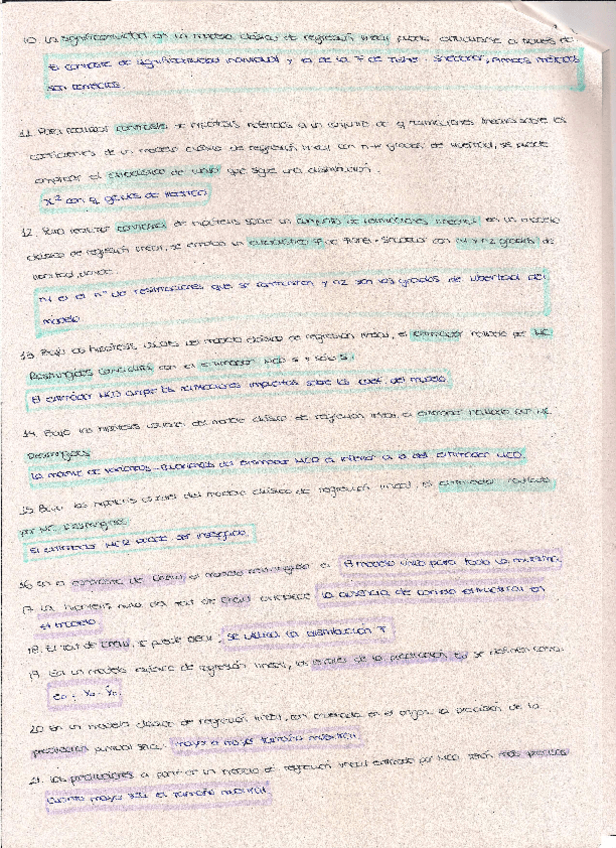 10. La significatividad en un modelo clásico de regresión lineal puede contrastarse a través de:
El contraste de significatividad individual y la de la F de Fisher-Snedecor, ambos métodos
son correctos.
11. Para realizar contrastes de hipótesis referidas a un conjunto de q restricciones lineales sobre los
coeficientes de un modelo clásico de regresión lineal con n-k grados de libertad, se puede
emplear el estadístico de Wald que sigue una distribución:
X² con q grados de libertad
12. Para realizar contrastes de hipótesis sobre un conjunto de restricciones lineales en un modelo
clásico de regresión lineal, se emplea un estadístico F de Fisher-Snedecor con n1 y n2 grados de
libertad, donde:
n1 es el nº de restricciones que se contrastan y n2 son los grados de libertad del
modelo.
13. Bajo las hipótesis usuales del modelo clásico de regresión lineal, el estimador resultante por MC
Restringidos coincidirá con el estimador MCO si y sólo si:
El estimador MCO cumple las restricciones impuestas sobre los coef. del modelo.
14. Bajo las hipótesis usuales del modelo clásico de regresión lineal, el estimador resultado por MC
Restringidos
La matriz de varianzas-covarianzas del estimador MCR es inferior a la del estimador MCO.
15. Bajo las hipótesis usuales del modelo clásico de regresión lineal, el estimador resultado
por MC Restringidos
El estimador MCR puede ser insesgado.
16 En el contraste de Chow el modelo restringido es El modelo único para toda la muestra.
17 La hipótesis nula del test de Chow establece la ausencia de cambio estructural en
el modelo
18. El test de Chow, se puede decir, se utiliza la distribución F
19. En un modelo clásico de regresión lineal, los errores de la predicción, se definen como
20 En un modelo clásico de regresión lineal, con ordenada en el origen la precisión de la
predicción puntual será: mayor a mayor tamaño muestral.
21. Las predicciones a partir de un modelo de regresión lineal estimado por MCO serán más precisas
cuanto mayor sea el tamaño muestral.